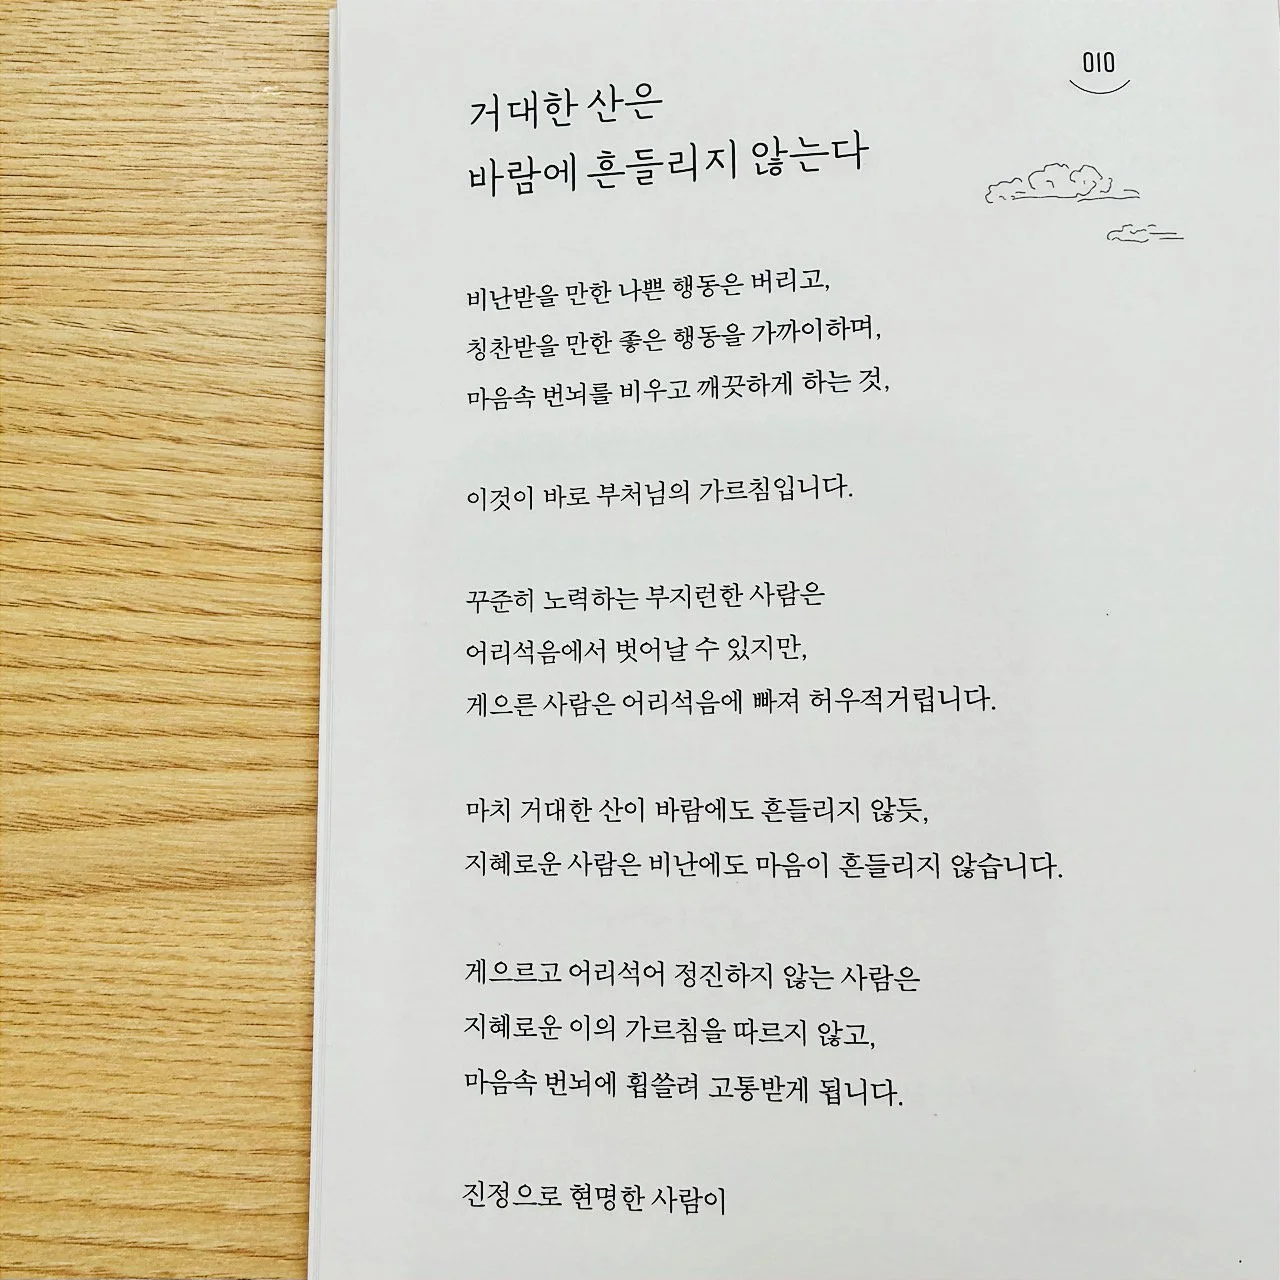 010
거대한 산은
바람에 흔들리지 않는다
비난받을 만한 나쁜 행동은 버리고,
칭찬받을 만한 좋은 행동을 가까이하며,
마음속 번뇌를 비우고 깨끗하게 하는 것,
이것이 바로 부처님의 가르침입니다.
꾸준히 노력하는 부지런한 사람은
어리석음에서 벗어날 수 있지만,
게으른 사람은 어리석음에 빠져 허우적거립니다.
마치 거대한 산이 바람에도 흔들리지 않듯,
지혜로운 사람은 비난에도 마음이 흔들리지 않습니다.
게으르고 어리석어 정진하지 않는 사람은
지혜로운 이의 가르침을 따르지 않고,
마음속 번뇌에 휩쓸려 고통받게 됩니다.
진정으로 현명한 사람이